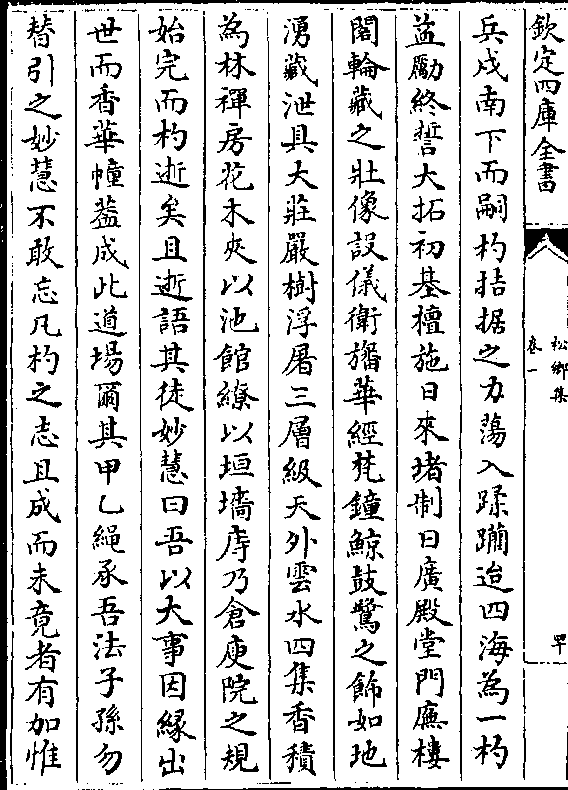 欽定四庫全書
松鄉集
卷一
兵戍南下而嗣杓拮据之力蕩入蹂躪迨四海為一杓
益勵終誓大拓初基檀施日來堵制日廣殿堂門廡樓
閣輪藏之壯像設儀衛旛華經梵鐘鯨鼓鷺之飾如地
湧藏泄具大莊嚴樹浮屠三層級天外雲水四集香積
為林禪房花木夾以池館繚以垣墻庤乃倉庾院之規
始完而杓逝矣且逝語其徒妙慧曰吾以大事因緣出
世而香華幢葢成此道場爾其甲乙繩承吾法子孫勿
替引之妙慧不敢忘凡杓之志且成而未竟者有加惟